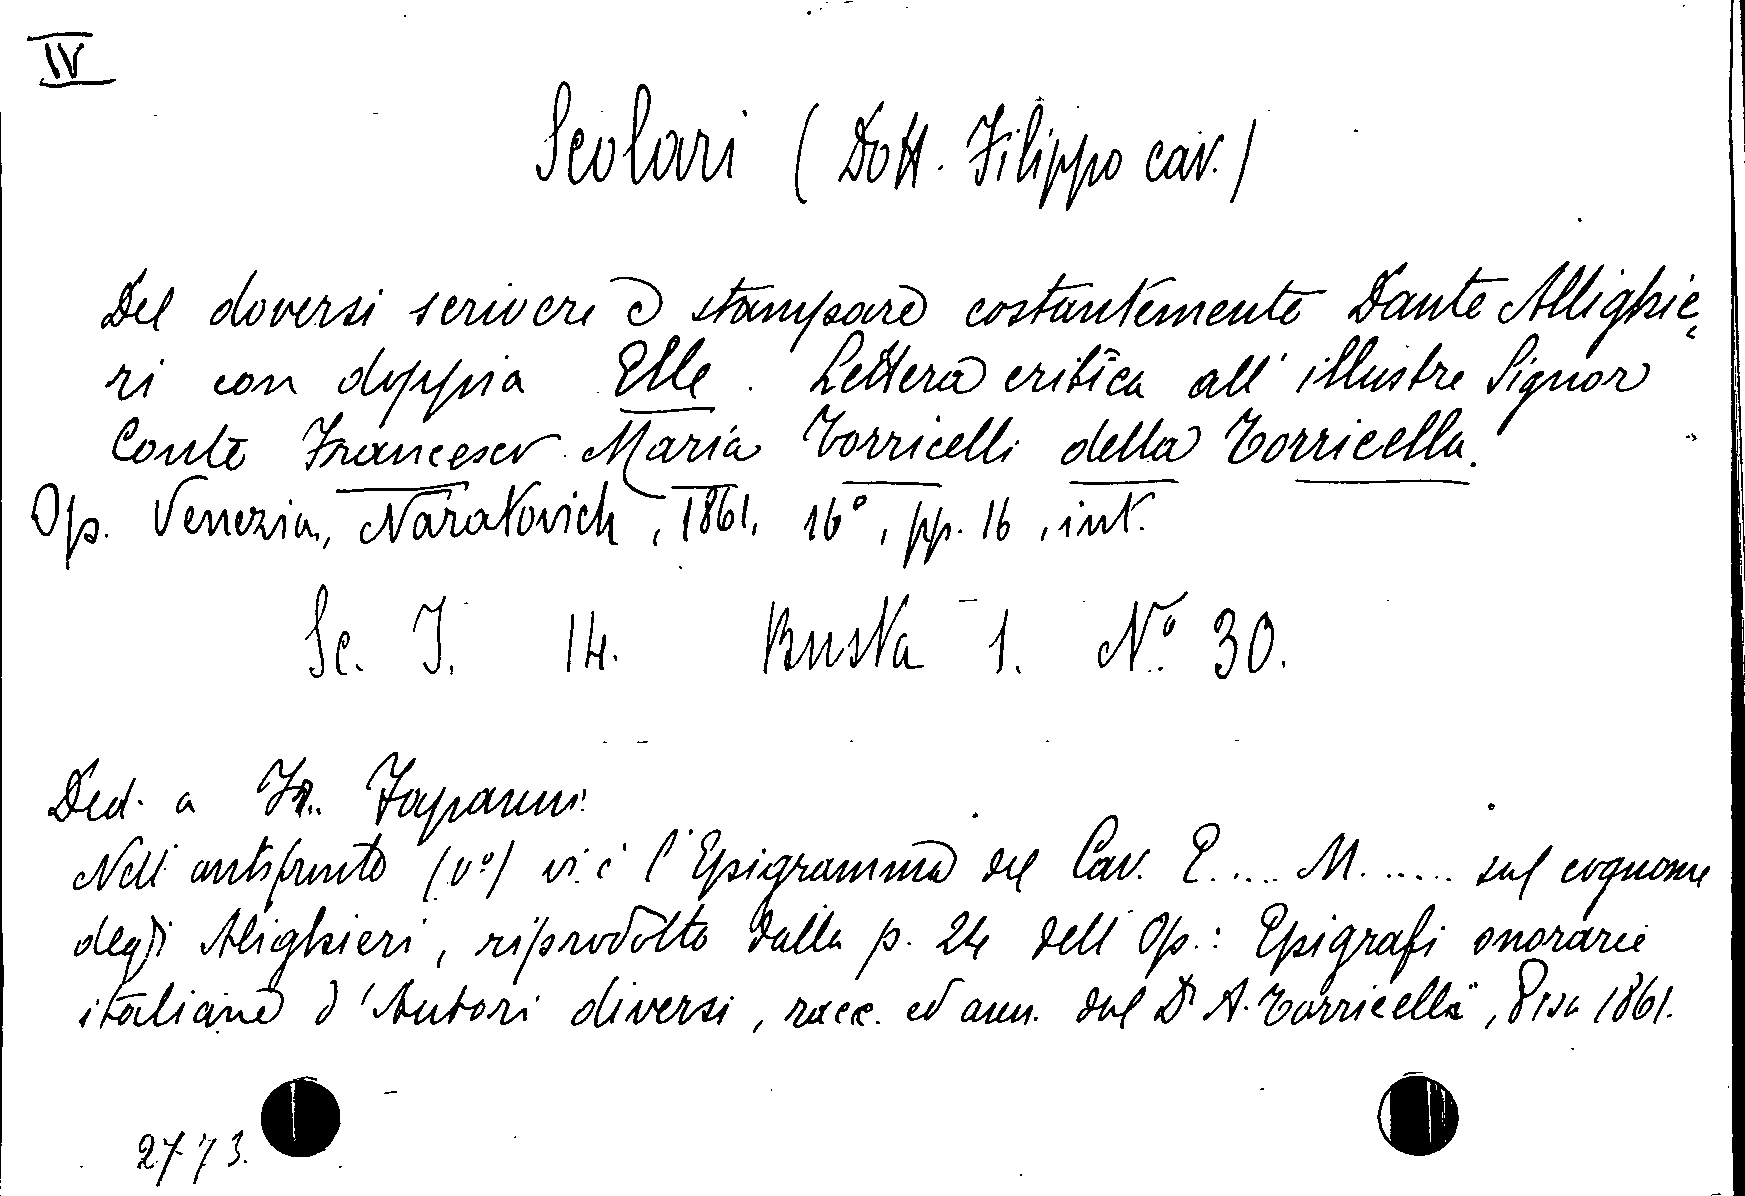 IV
Scolari (Dott. Filippo cav.)
Del doversi scrivere e stampare costantemente Dante Allighie-
ri con doppia Elle. Lettera critica all' illustre Signor
Conte Francesco Maria Torricelli della Torricella.
Op. Venezia, Naratovich, 1861, 16°, pp. 16, int.
Sc. I. 14. Busta 1. N.° 30.
Ded. a Fr. Fapanni
Nell' antifronte (v°) vi è l'Epigramma del Cav. E.... M...... sul cognome
degli Alighieri, riprodotto dalla p. 24 dell' Op.: Epigrafi onorarie
italiane d'Autori diversi, racc. ed ann. dal Dr A. Torricella", Pisa 1861.
2773.